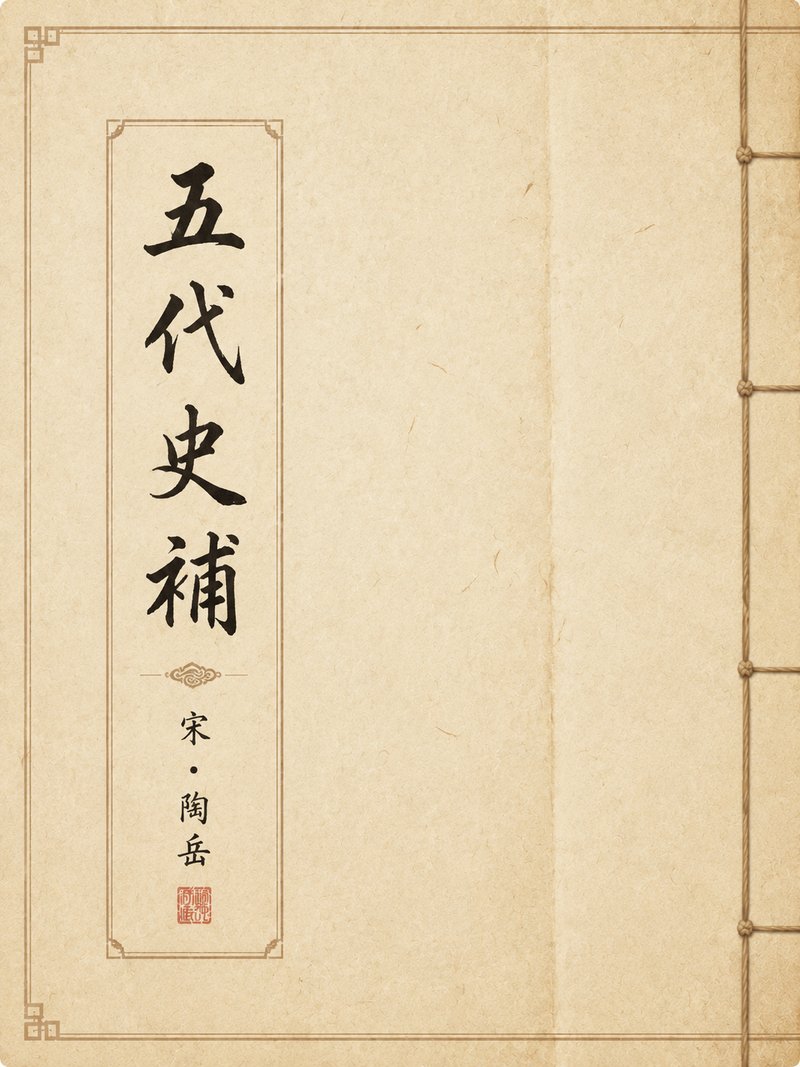 五代史補
宋·陶岳